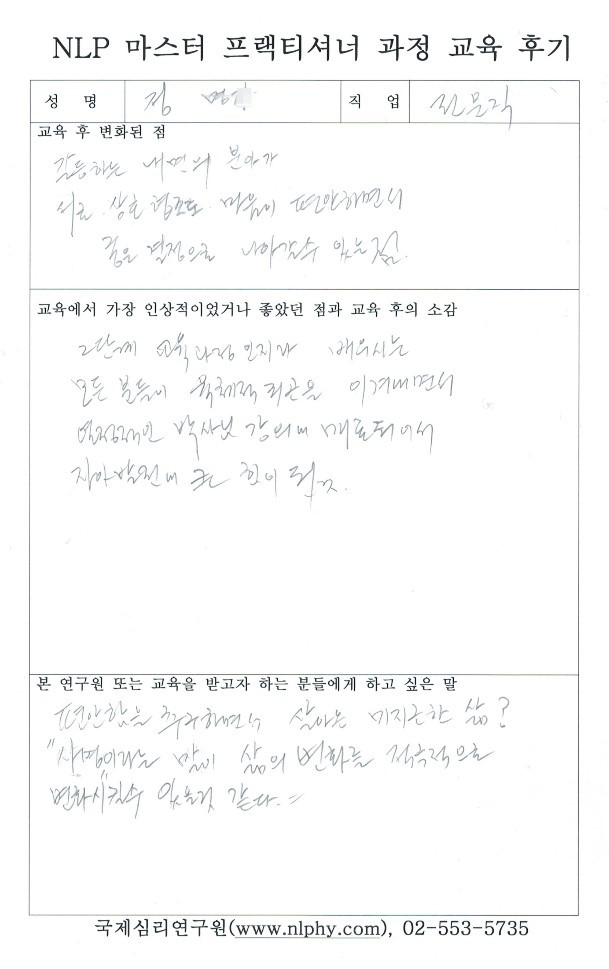 NLP 마스터 프랙티셔너 과정 교육 후기
성 명 정 명 직 업 전문직
교육 후 변화된 점
갈등하는 내면의 분아가
서로 상호 협조로 마음이 편안하면서
좋은 결정으로 나아갈수 있는점.
교육에서 가장 인상적이었거나 좋았던 점과 교육 후의 소감
2단계 교육과정 인지라 배우시는
모든 분들이 육체적 피곤을 이겨내면서
열정적인 박사님 강의에 매료되어서
자아발전에 큰 힘이 됨.
본 연구원 또는 교육을 받고자 하는 분들에게 하고 싶은 말
편안함을 추구하면서 살아온 미지근한 삶?
"사명이라는 말이 삶의 변화를 적극적으로
변화시킬수 있을것 같다.
국제심리연구원(www.nlphy.com), 02-553-5735